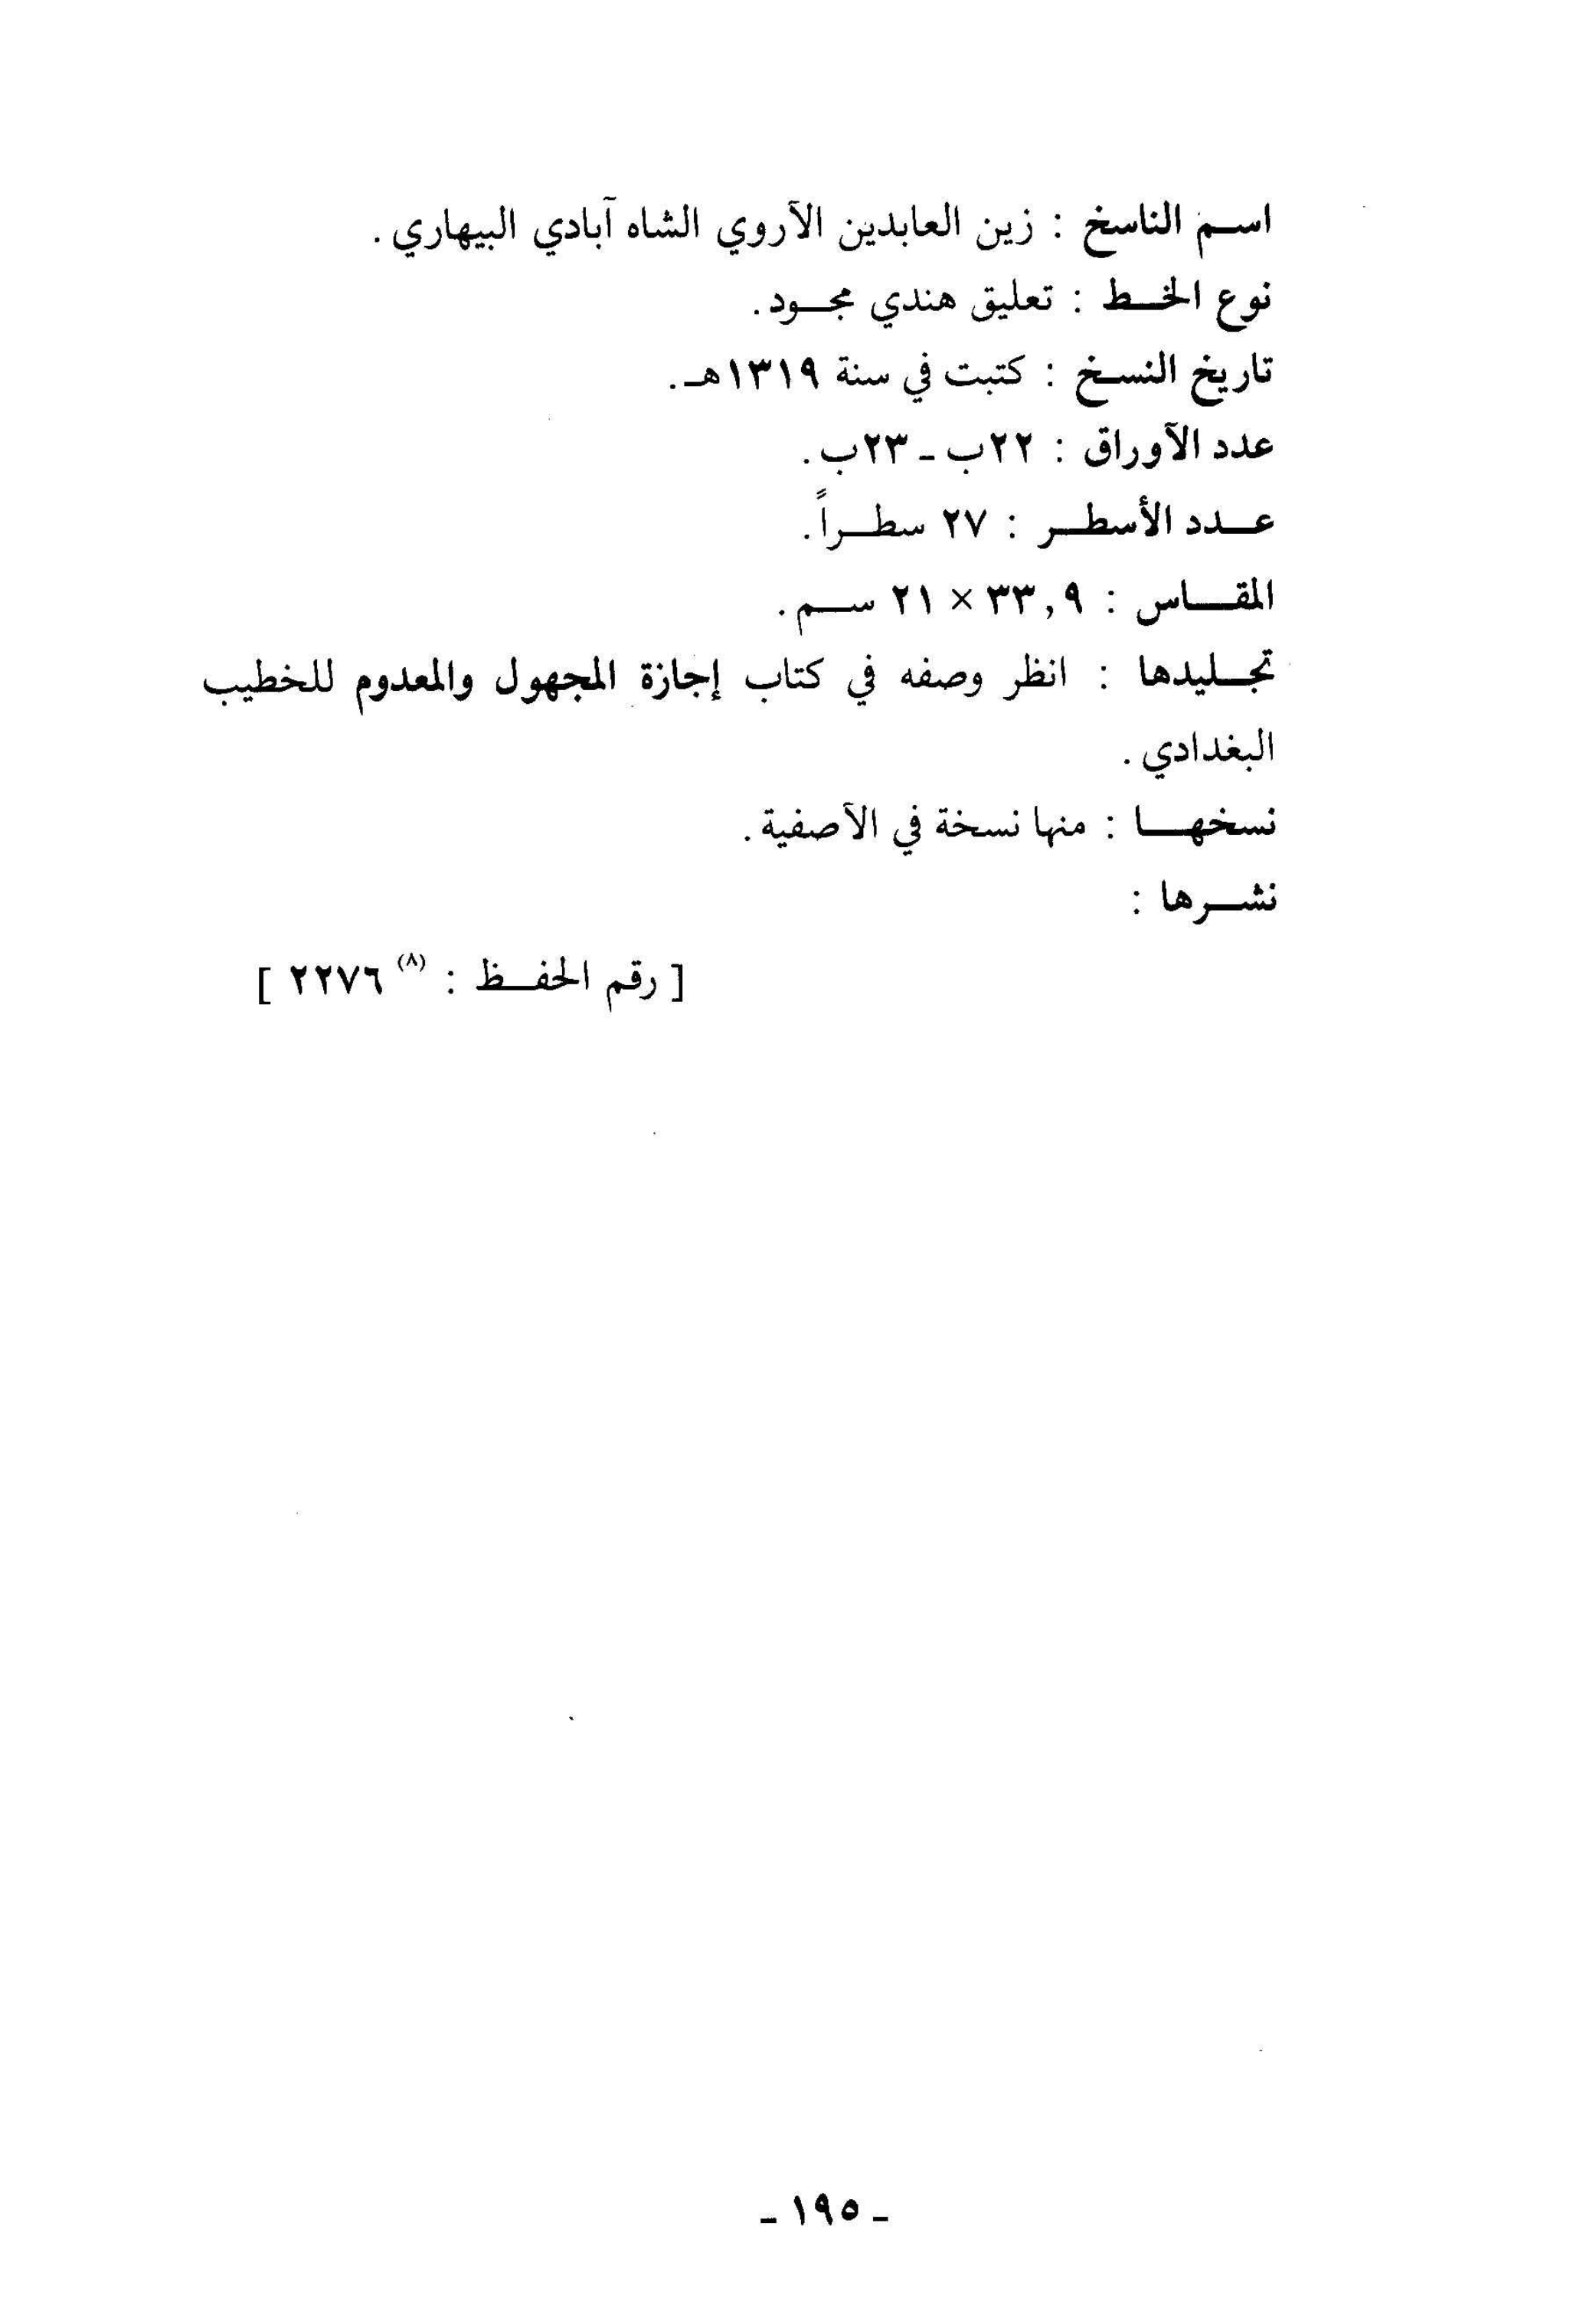 اسم الناسخ : زين العابدين الآروي الشاه آبادي البيهاري .
نوع الخط : تعليق هندي مجود .
تاريخ النسخ : كتبت في سنة ١٣١٩هـ .
عدد الآوراق : ٢٢ب ـ ٢٣ب .
عدد الأسطر : ٢٧ سطراً .
المقاس : ٣٣,٩ × ٢١ سم .
تجليدها : انظر وصفه في كتاب إجازة المجهول والمعدوم للخطيب
البغدادي .
نسخها : منها نسخة في الآصفية .
نشرها :
[ رقم الحفظ : (٨) ٢٢٧٦ ]
ـ ١٩٥ ـ